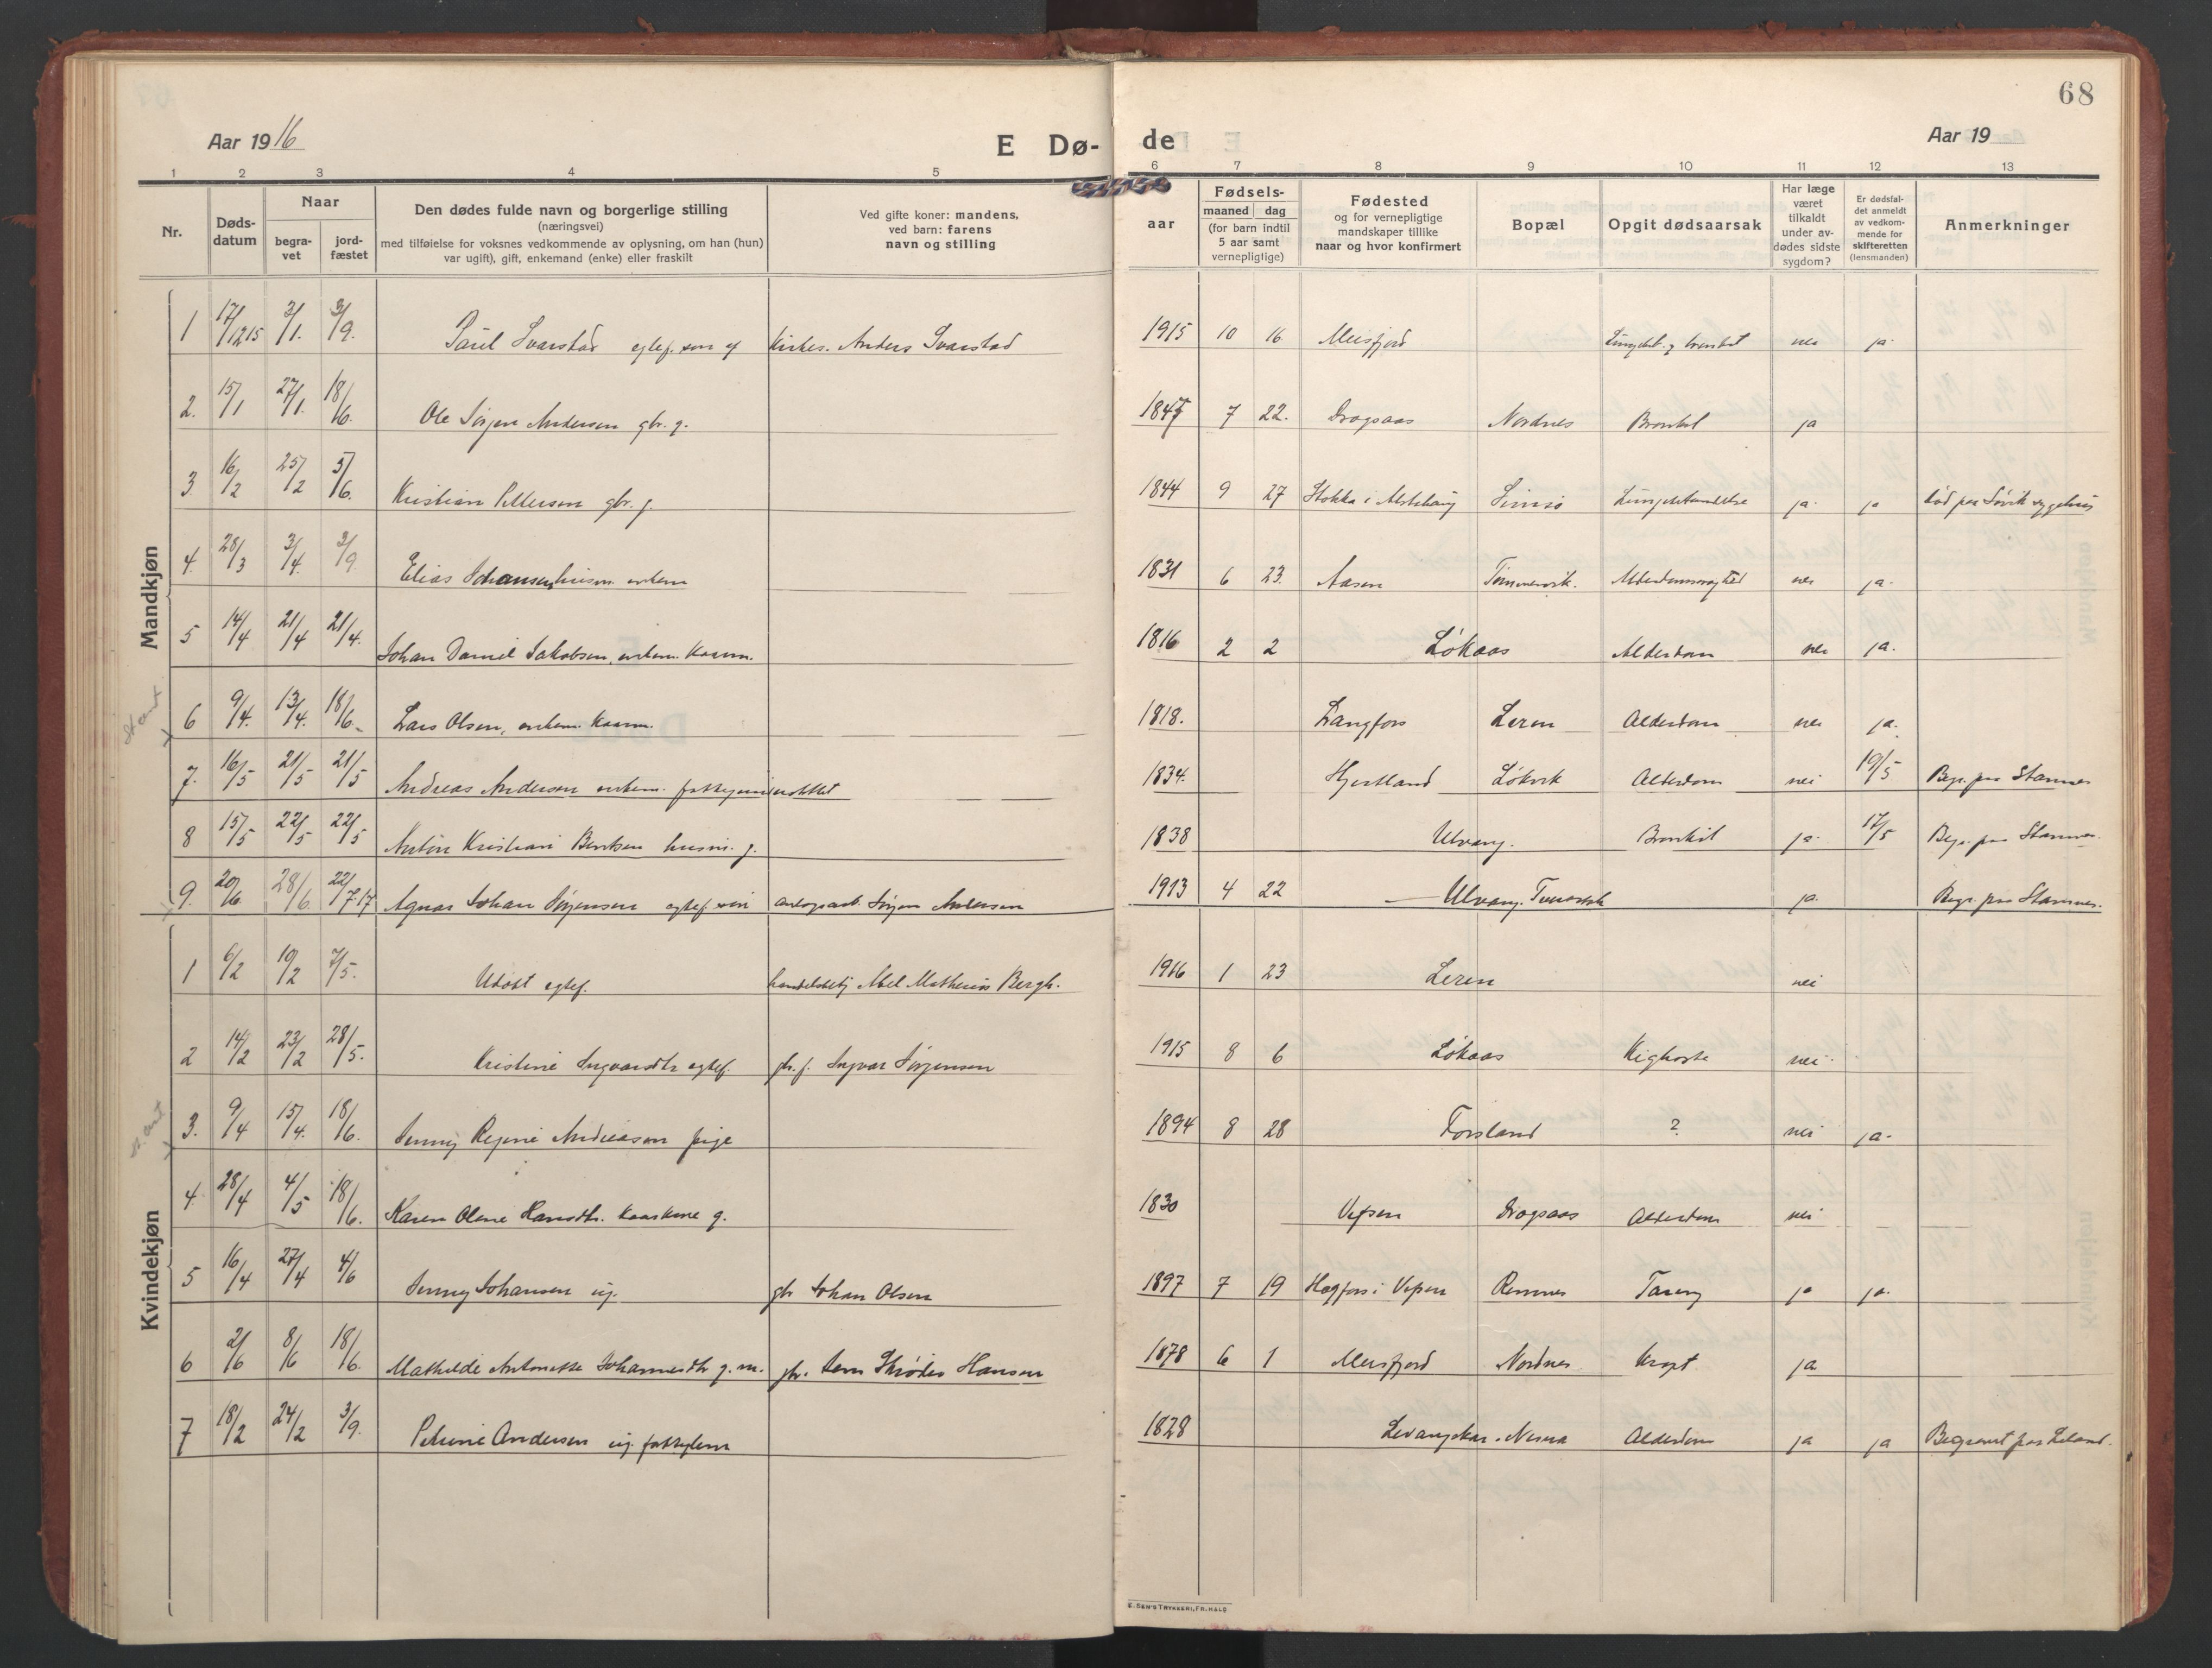 68
Aar 1916
E Dø-
de
Aar 19
1 2 3 4 5 6 7 8 9 10 11 12 13
Nr.
Døds-
datum
Naar
begra-
vet
jord-
fæstet
Den dødes fulde navn og borgerlige stilling
(næringsvei)
med tilføielse for voksnes vedkommende av oplysning, om han (hun)
var ugift), gift, enkemand (enke) eller fraskilt
Ved gifte koner: mandens,
ved barn: farens
navn og stilling
aar
Fødsels-
maaned dag
(for barn indtil
5 aar samt
vernepligtige)
Fødested
og for vernepligtige
mandskaper tillike
naar og hvor konfirmert
Bopæl
Opgit dødsaarsak
Har læge
været
tilkaldt
under av-
dødes sidste
sygdom?
Er dødsfal-
det anmeldt
av vedkom-
mende for
skifteretten
(lensmanden)
Anmerkninger
Mandkjøn
1 17/12 15 3/1. 3/9. Paul Svarstad egtef. søn af kirkes. Anders Svarstad 1915 10 16 Meisfjord nei ja.
2. 15/1 27/1. 18/6. Ole Jørgen Andersen gbr. g. 7 22. Dragsaas Nordnes Bronkit ja
3. 16/2 25/2 5/6. Kristian Pettersen gbr. g. 1844 9 27 Stokka i Alstahaug ja. ja død paa Søvik sygehus
4. 28/3 3/4. 3/9. Elias Johansen husm. enkem 1831 6 23. Aasen Tømmervik. nei ja.
5 14/4 21/4 21/4. Johan Daniel Jakobsen, enkem. kaarm. 1816 2 2 Løkaas Alderdom nei ja.
6 9/4. 13/4. 18/6. Lars Olsen, enkem. kaarm. 1818. Langfors Leren Alderdom nei ja.
7. 16/5 21/5 21/5 Andreas Andersen enkem. 1834. Hjertland Løkvik Alderdom nei 19/5 Begr. paa Stamnes
8 15/5 22/5 22/5 Anton Kristian Bentsen husm. g. 1838 Ulvang. Bronkit ja. 17/5 Begr. paa Stamnes.
9. 20/6. 28/6. 22/7 17 Agnar Johan Jørgensen egtef. søn Jørgen Andersen 1913 4 22 Ulvang. ja. Begr. paa Stamnes.
Kvindekjøn
1 6/2 10/2 7/5. Udøbt egtef. handelsbetj. Abel Mathisen Bergh. 1916 1 23 Leren nei
2 14/2 23/2 28/5. Kristine Ingvarsdtr egtef. gbr. f. Ingvar Jørgensen 1915 8 6 Løkaas Kighoste nei.
3. 9/4 15/4. 18/6. Jenny Regine Andreasen pige 1894 8 28 Forsland ? nei ja.
4. 28/4 4/5 18/6. Karen Oline Hansdtr. kaarkone g. 1830 Vefsen Dragsaas Alderdom nei
5 16/4 27/4 4/6 Jenny Johansen ug. gbr Johan Olsen 1897 7 19 Hagfors i Vefsen Remnes Tæring ja ja.
6 2/6 8/6 18/6. Mathilde Antonette Johannesdtr g. m. gbr. Jens Skrøder Hansen 1878 6 1 Meisfjord Nordnes Kræft ja
7 18/2 24/2 3/9. Petrine Andersen ug. fattiglem 1828 Levangskar. Nesna Alderdom ja ja Begravet paa Leland.
E. SEM'S TRYKKERI, FR.HALD